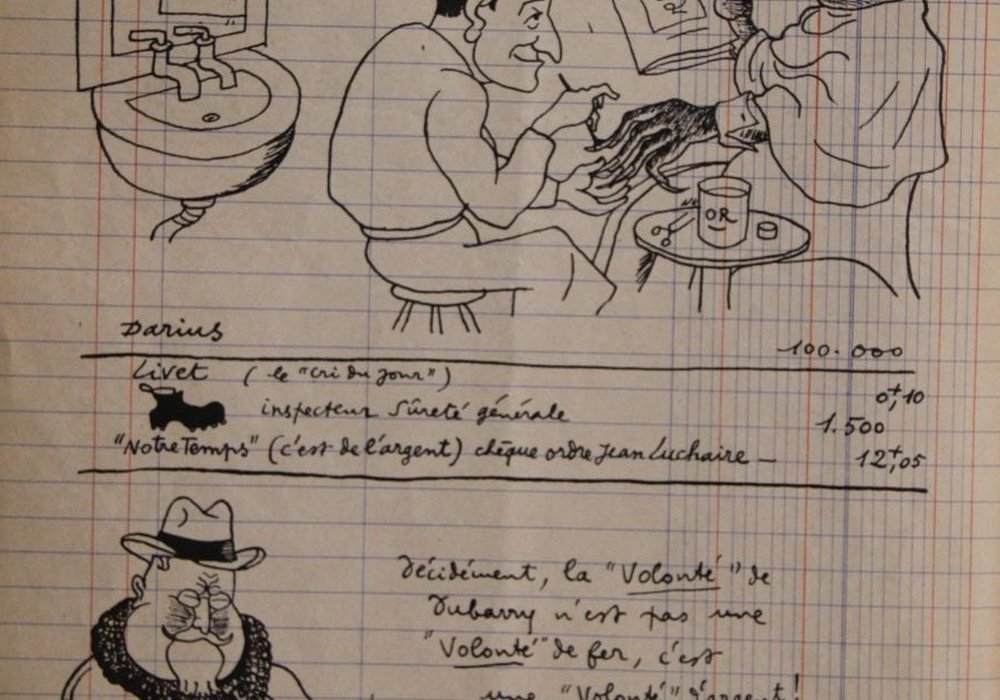 OR
Darius 100.000
Livet (le "cri du jour") 0f,10
inspecteur Sûreté générale 1.500
"Notre Temps" (c'est de l'argent) chèque ordre Jean Luchaire — 12f,05
Décidément, la "Volonté" de
Dubarry n'est pas une
"Volonté" de fer, c'est
une "Volonté" d'argent!